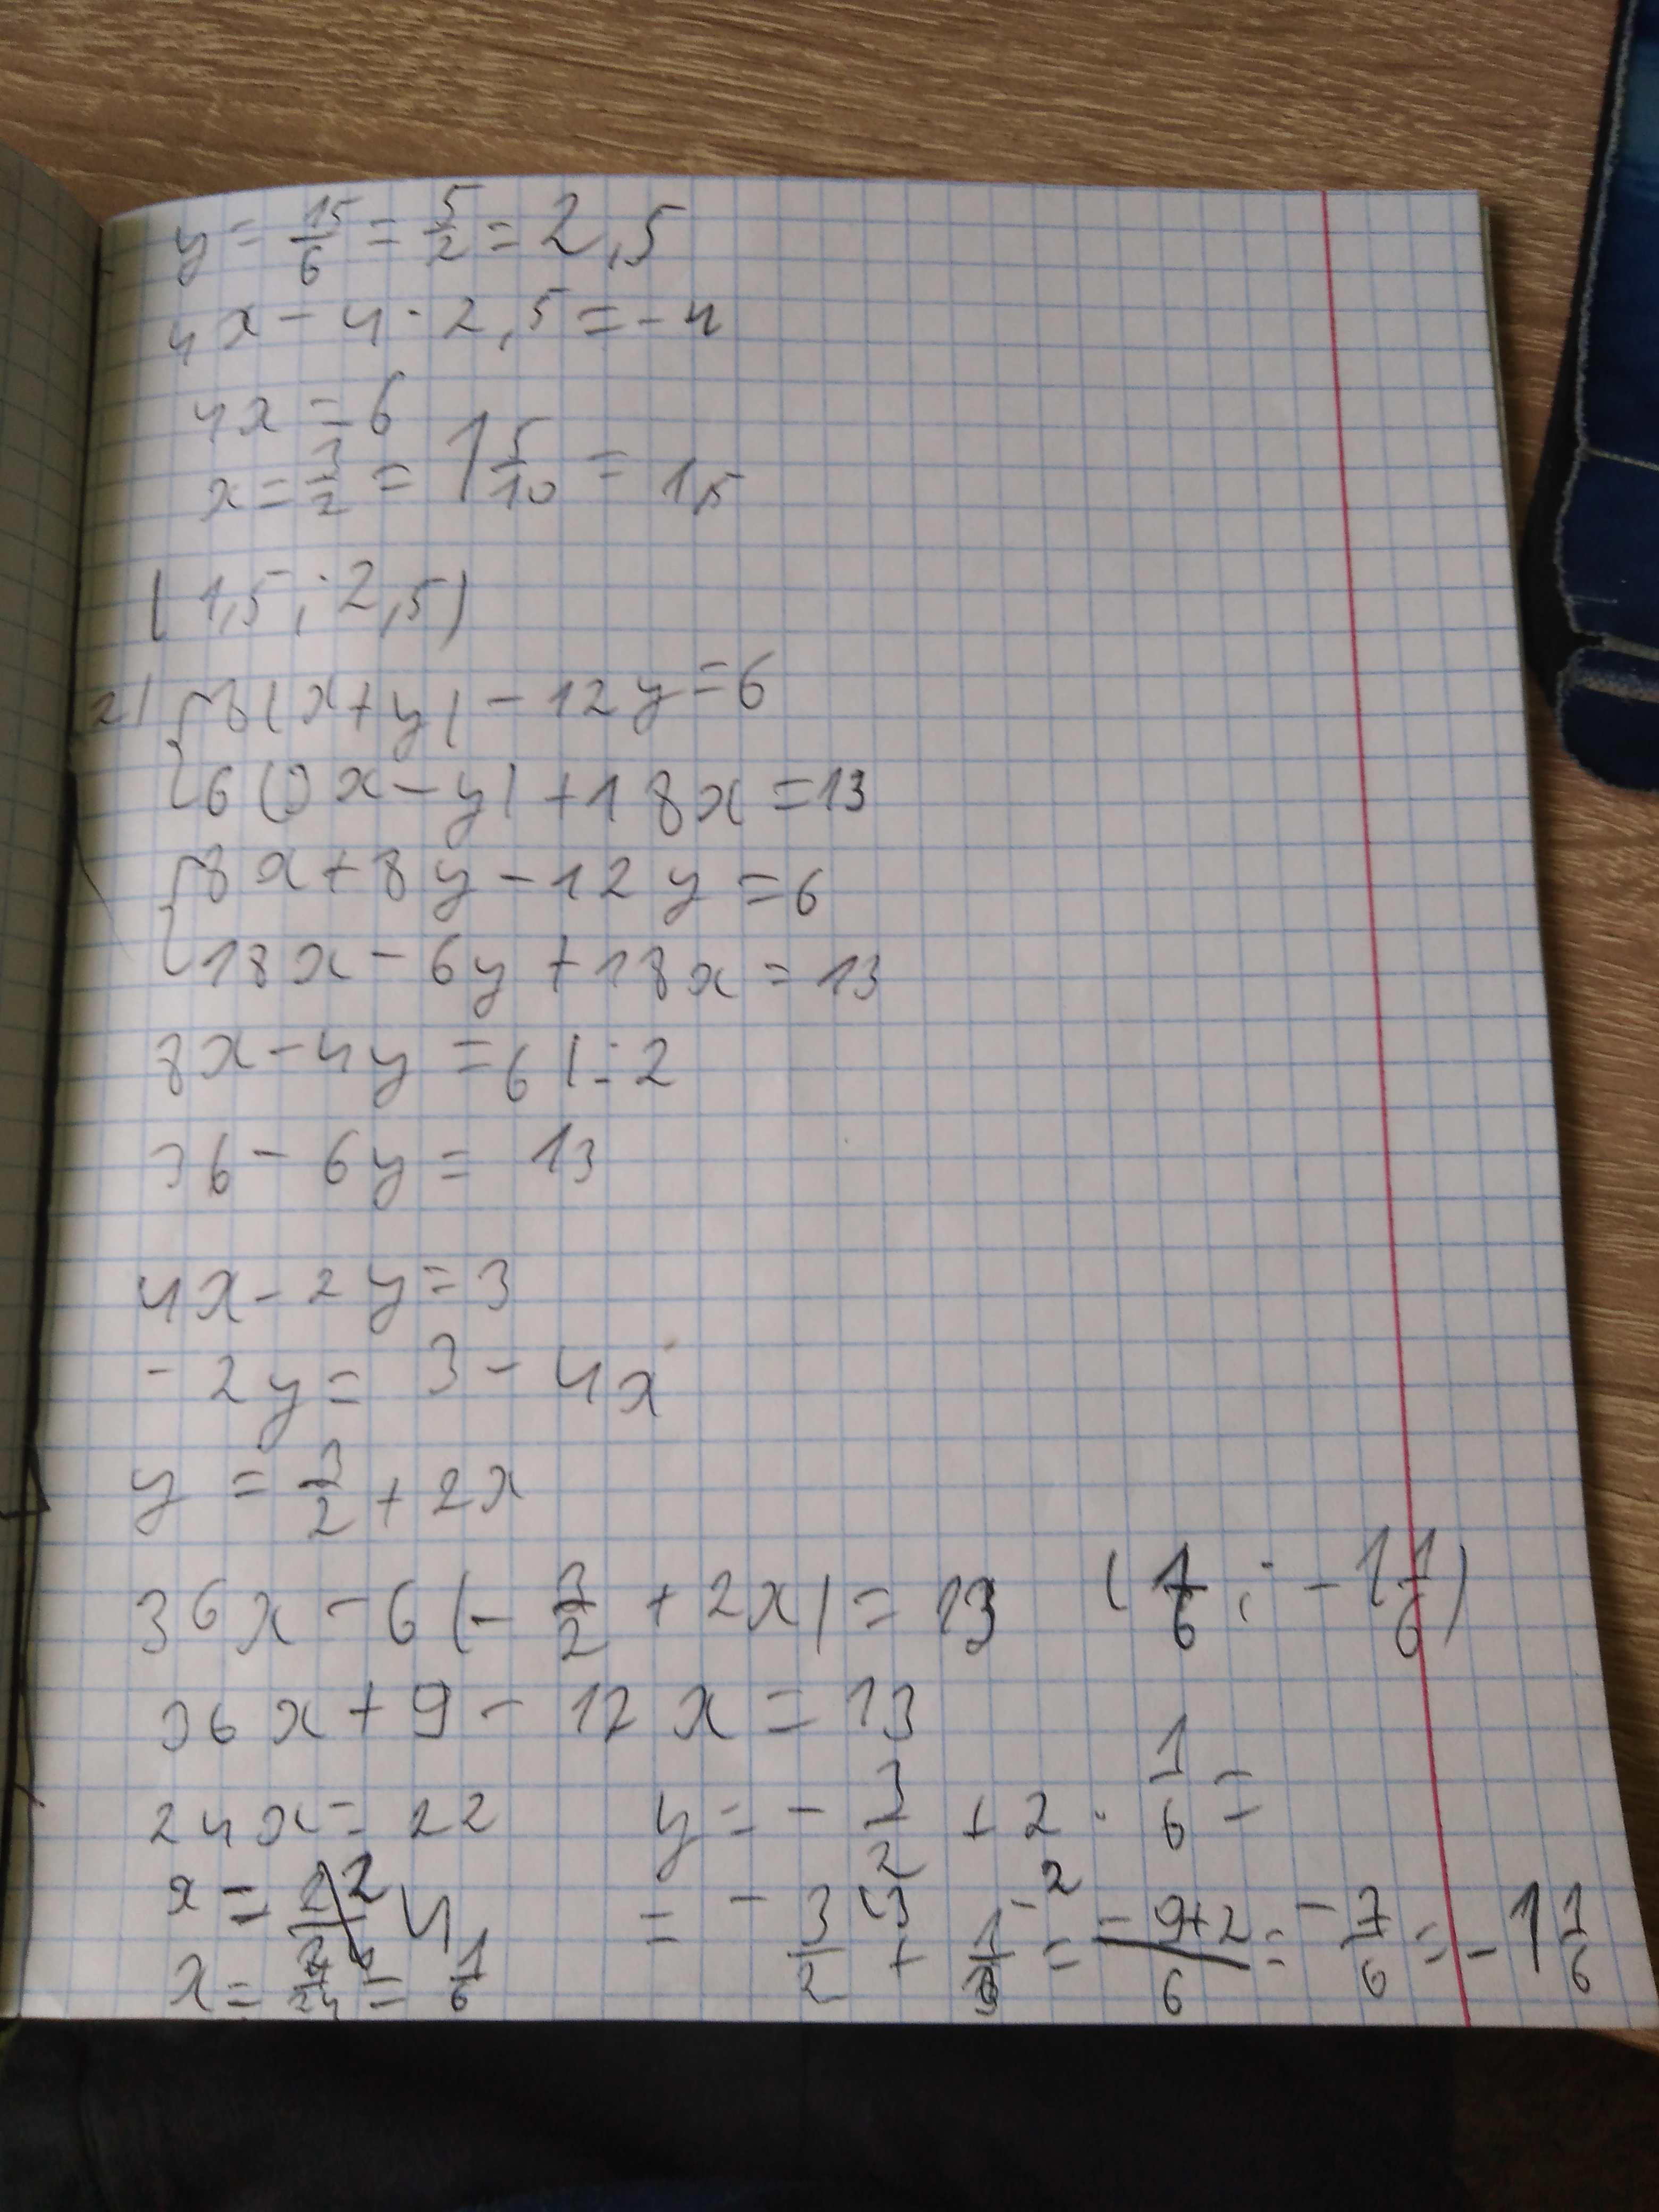 y = 15/6 = 5/2 = 2,5
4x - 4 · 2,5 = -4
4x = 6
x = 3/2 = 1 5/10 = 1,5
(1,5 ; 2,5)
г) { 8(x+y) - 12y = 6
6(3x - y) + 18x = 13
{ 8x + 8y - 12y = 6
18x - 6y + 18x = 13
8x - 4y = 6 | : 2
36 - 6y = 13
4x - 2y = 3
- 2y = 3 - 4x
y = 3/2 + 2x
36x - 6(- 3/2 + 2x) = 13 (1/6 ; -1 1/6)
36x + 9 - 12x = 13
24x = 22 y = - 3/2 + 2 · 1/6 =
x = = - 3/2 + 1/3 = -9+2/6 = - 7/6 = -1 1/6
x = 4/24 = 1/6